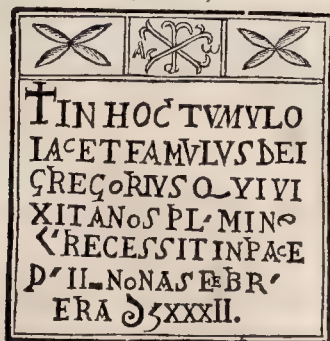 A ω
†IN HOC TVMVLO
IACET FAMVLVS DEI
GREGORIVS QVI VI
XIT ANOS PL· MINo
RECESSIT IN PACE
D' II NONAS FEBR'
ERA XXXII.